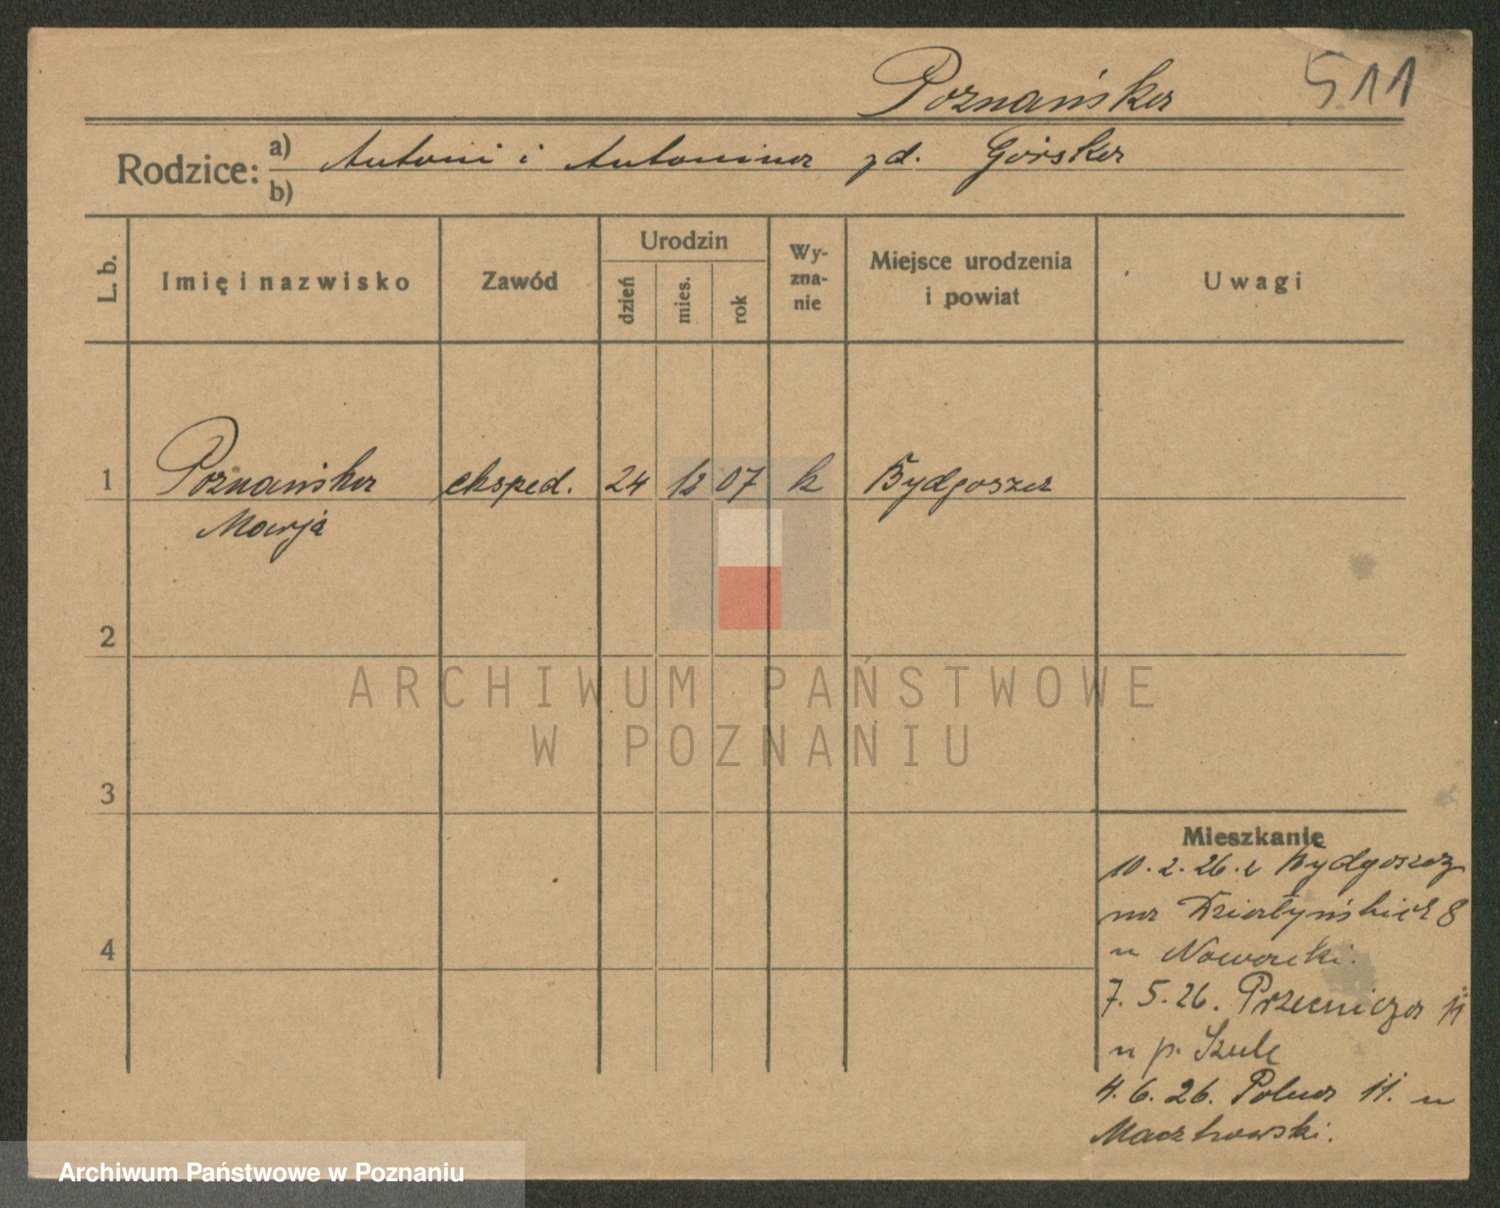 Poznańska 511
Rodzice: a) Antoni i Antonina zd. Górska
b)
L. b. Imię i nazwisko Zawód Urodzin dzień mies. rok Wy-zna-nie Miejsce urodzenia i powiat Uwagi
1 Poznańska eksped. 24 12 07 k Bydgoszcz
Marja
2
3
4
Mieszkanie
10.2.26. z Bydgoszcz
na Działyńskich 8
u Nowacki.
7.5.26. Pszenicza 11
u p. Szulc
4.6.26. Polna 11. u
ARCHIWUM PAŃSTWOWE
W POZNANIU
Archiwum Państwowe w Poznaniu